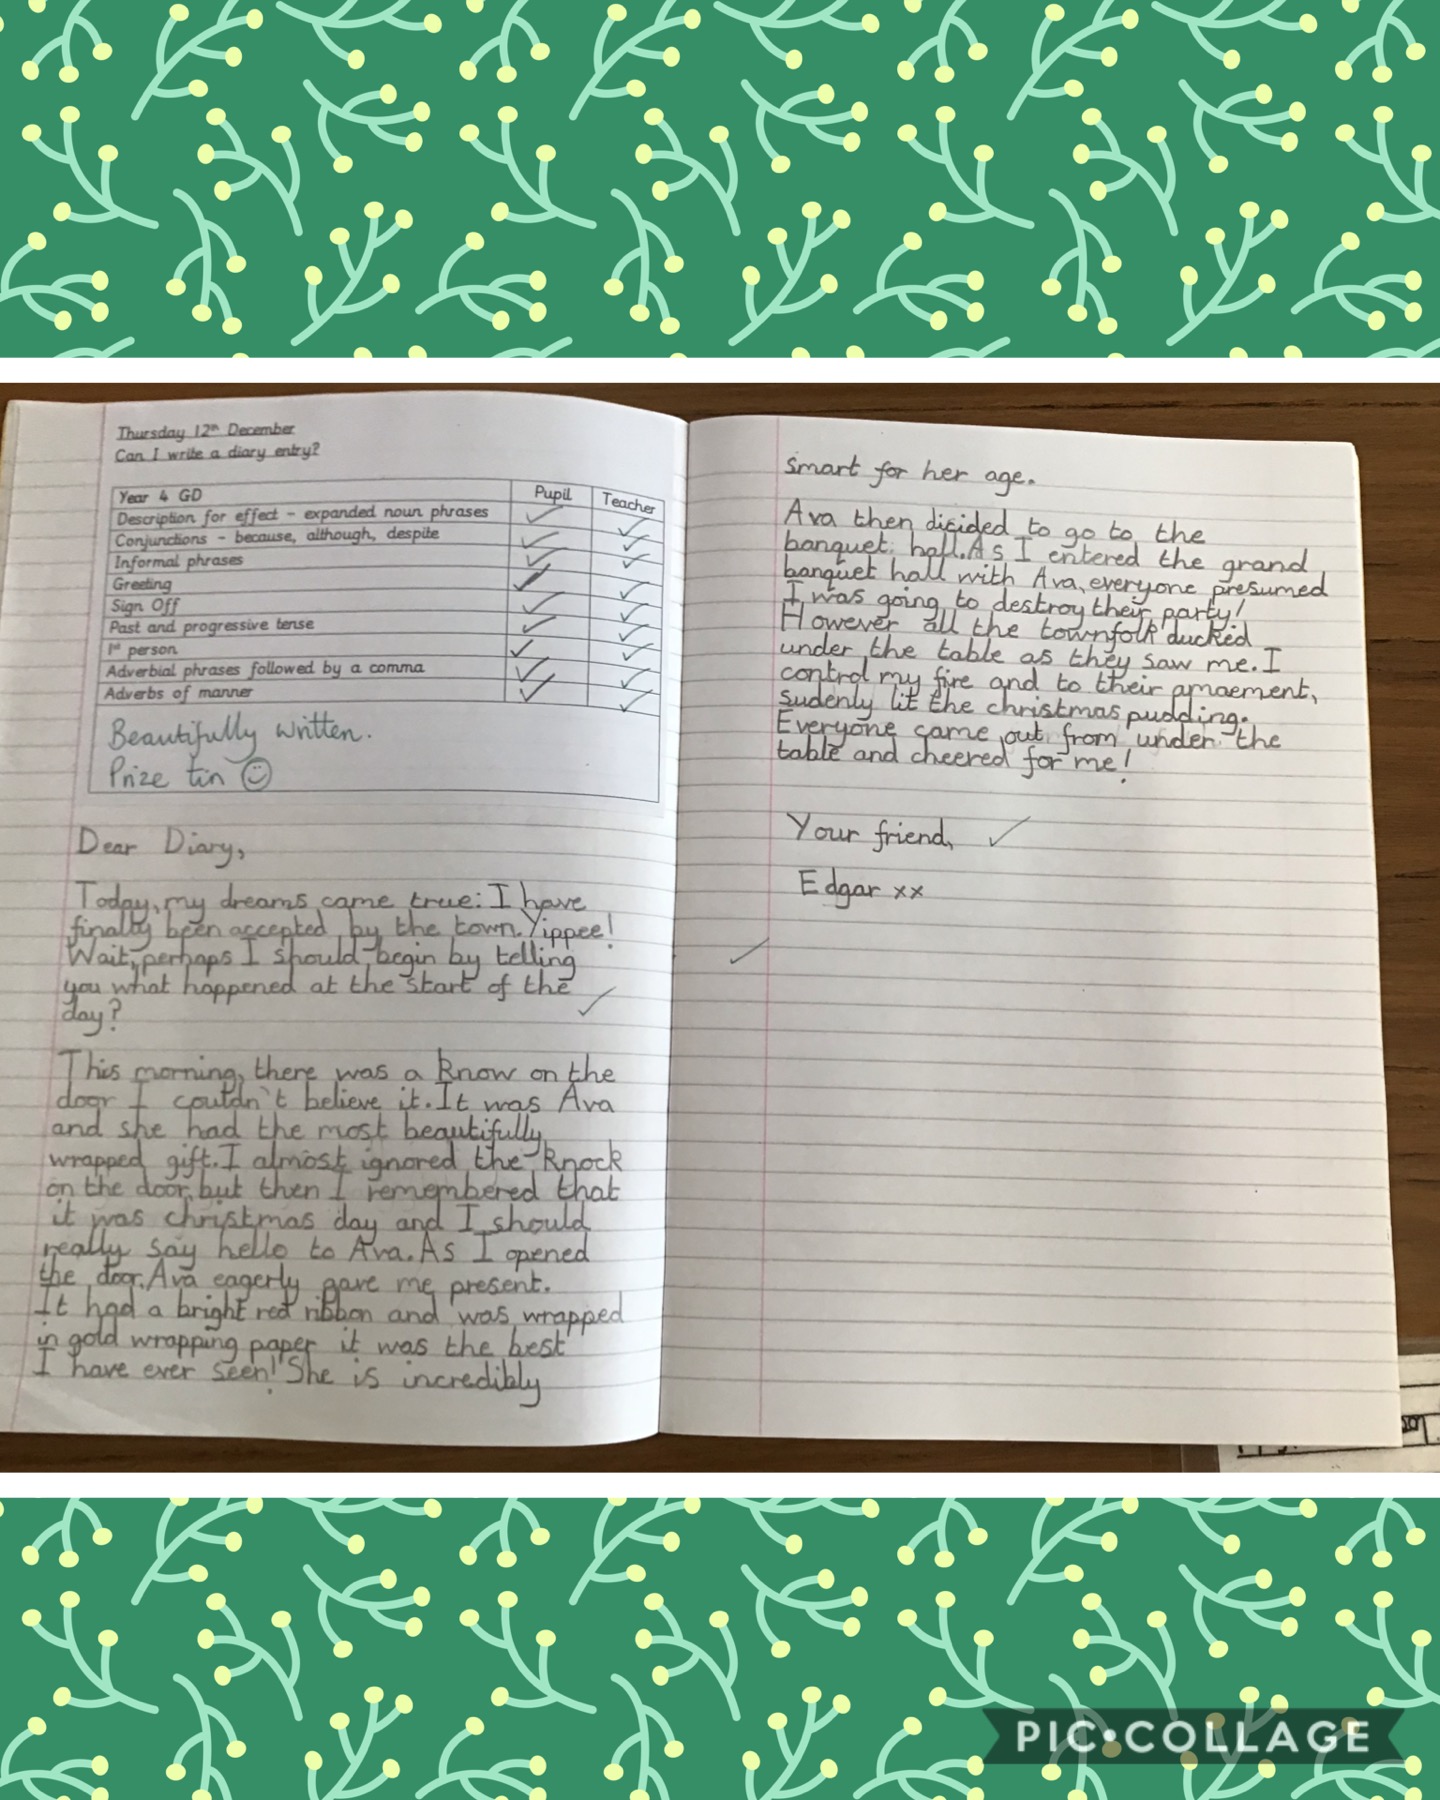 Thursday 12th December
Can I write a diary entry?
Year 4 GD Pupil Teacher
Description for effect – expanded noun phrases
Conjunctions – because, although, despite
Informal phrases
Greeting
Sign Off
Past and progressive tense
1st person
Adverbial phrases followed by a comma
Adverbs of manner
Beautifully written.
Prize tin
Dear Diary,
Today, my dreams came true: I have
finally been accepted by the town. Yippee!
Wait, perhaps I should begin by telling
you what happened at the start of the
day?
This morning, there was a know on the
door I couldn't believe it. It was Ava
and she had the most beautifully
wrapped gift. I almost ignored the knock
on the door, but then I remembered that
it was christmas day and I should
really say hello to Ava. As I opened
the door, Ava eagerly gave me present.
It had a bright red ribbon and was wrapped
in gold wrapping paper it was the best
I have ever seen! She is incredibly
smart for her age.
Ava then dicided to go to the
banquet hall. As I entered the grand
banquet hall with Ava, everyone presumed
I was going to destroy their party!
However all the townfolk ducked
under the table as they saw me. I
control my fire and to their amaement,
sudenly lit the christmas pudding.
Everyone came out from under the
table and cheered for me!
Your friend,
Edgar xx
PIC•COLLAGE